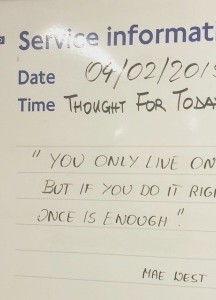 Service informati
Date 04/02/201
Time THOUGHT FOR TODA
" YOU ONLY LIVE ON
BUT IF YOU DO IT RIG
ONCE IS ENOUGH ".
MAE WEST